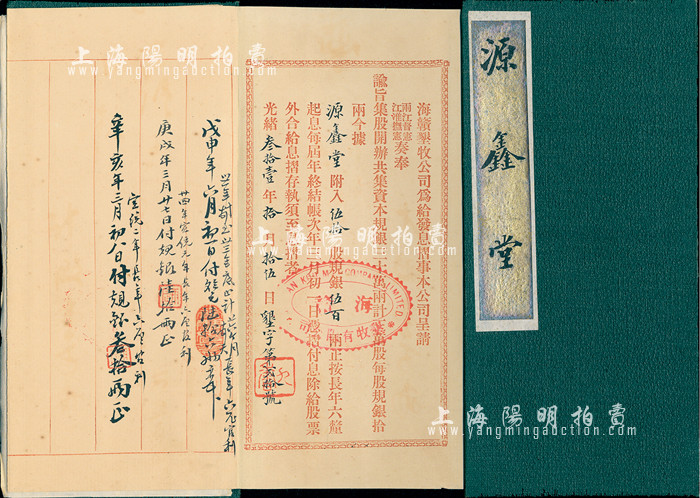 源鑫堂
海贛墾牧公司爲給發息摺事本公司呈請
兩江督憲
江淮撫憲
奏奉
諭旨集股開辦共集資本規銀
兩計
股每股規銀拾
兩今據
源鑫堂 附入 伍拾 股規銀 伍百 兩正按長年六釐
起息每屆年終結帳次年
月初一日憑摺付息除給股票
外合給息摺存執須至
光緒 叁拾壹 年 拾 月 拾伍 日 墾字第貳拾號
戊申年六月初一日付
庚戌年三月廿七日付規銀陸拾兩正
辛亥年三月初八日付規銀叁拾兩正
上海陽明拍賣
www.yangmingauction.com
上海陽明拍賣
www.yangmingauction.com